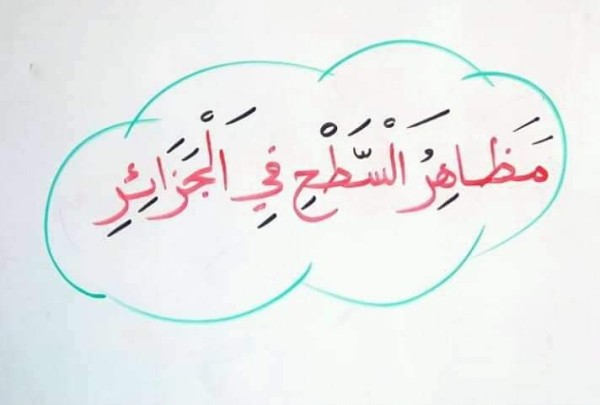 مَظَاهِرُ الْسَّطْحِ فِي الْجَزَائِرِ